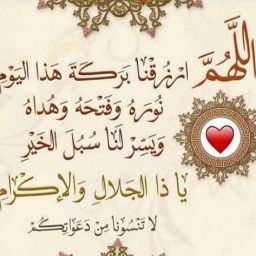 اللَّهُمَّ ارْزُقْنَا بَرَكَةَ هَذَا اليَوْمِ
نُورَهُ وَفَتْحَهُ وَهُدَاهُ
وَيَسِّرْ لَنَا سُبُلَ الخَيْرِ
يَا ذَا الجَلَالِ وَالإِكْرَامِ
لَا تَنْسَوْنَا مِنْ دَعَوَاتِكُمْ